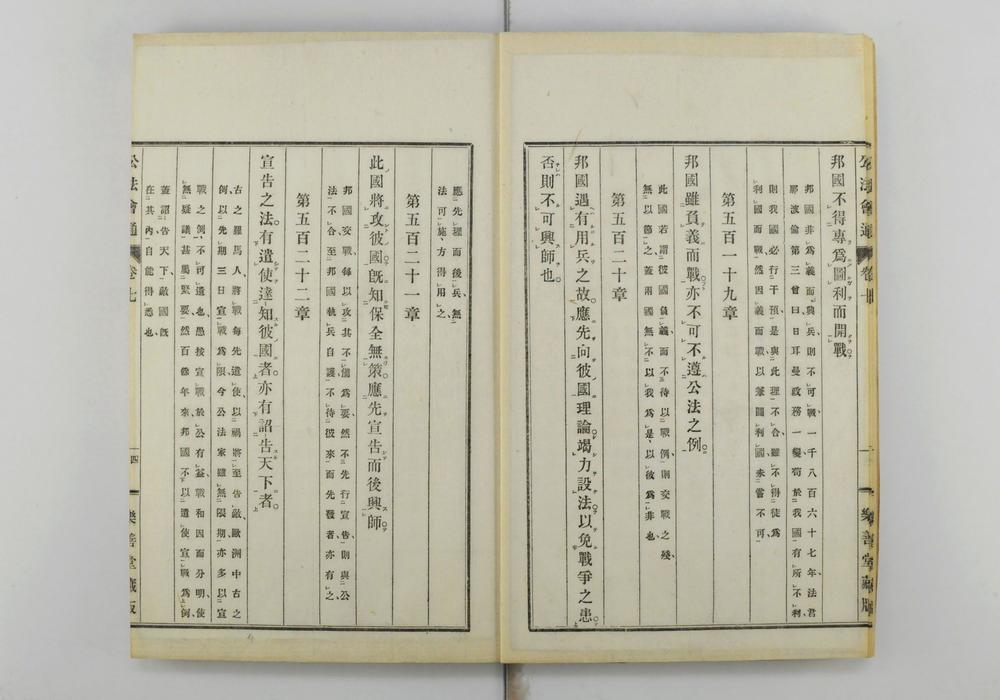 邦國不得專爲圖利而開戰
邦國非爲義而興兵則不可戰一千八百六十七年法君
耶波倫第三曾曰日耳曼政務一變苟於我國有所不利
則我國必行干預是與此理不合雖不得徒爲
利國而戰然因義而戰以兼圖利國未嘗不可
第五百一十九章
邦國雖負義而戰亦不可不遵公法之例
此國若謂彼國負義而不待以戰例則交戰之殘
無以節之蓋兩國無不以我爲是以彼爲非也
第五百二十章
邦國遇有用兵之故應先向彼國理論竭力設法以免戰爭之患
否則不可興師也
應先理而後兵無
法可施方得用之
第五百二十一章
此國將攻彼國旣知保全無策應先宣告而後興師
邦國交戰每以攻其不備爲要然不先行宣告則與公
法不合至邦國執兵自護不待彼來而先發者亦有之
第五百二十二章
宣告之法有遣使達知彼國者亦有詔告天下者
古之羅馬人將戰每先遣使以禍將至告敵歐洲中古之
例以先期三日宣戰爲限今公法家雖無限期亦多以宣
戰之例不可遺也愚按宣戰於公有益戰和因而分明使
無疑議甚屬緊要然百餘年來邦國不以遣使宣戰爲例
蓋詔告天下敵國旣
在其內自能得悉也
公法會通
卷七
十四
樂善堂藏版